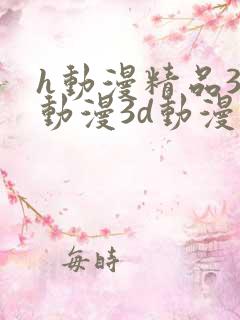 h動漫精品3
動漫3d動漫
每時